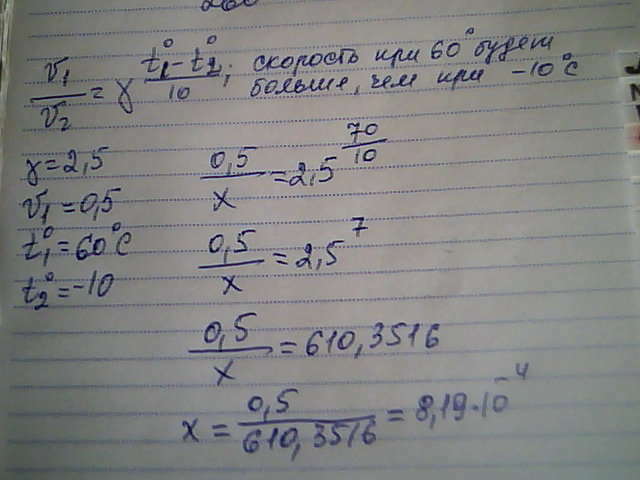 v₁/v₂ = γ^((t₁° - t₂°)/10); скорость при 60° будет
больше, чем при -10°C
γ = 2,5
v₁ = 0,5
t₁° = 60°C
t₂° = -10
0,5/x = 2,5^(70/10)
0,5/x = 2,5⁷
0,5/x = 610,3516
x = 0,5/610,3516 = 8,19·10⁻⁴